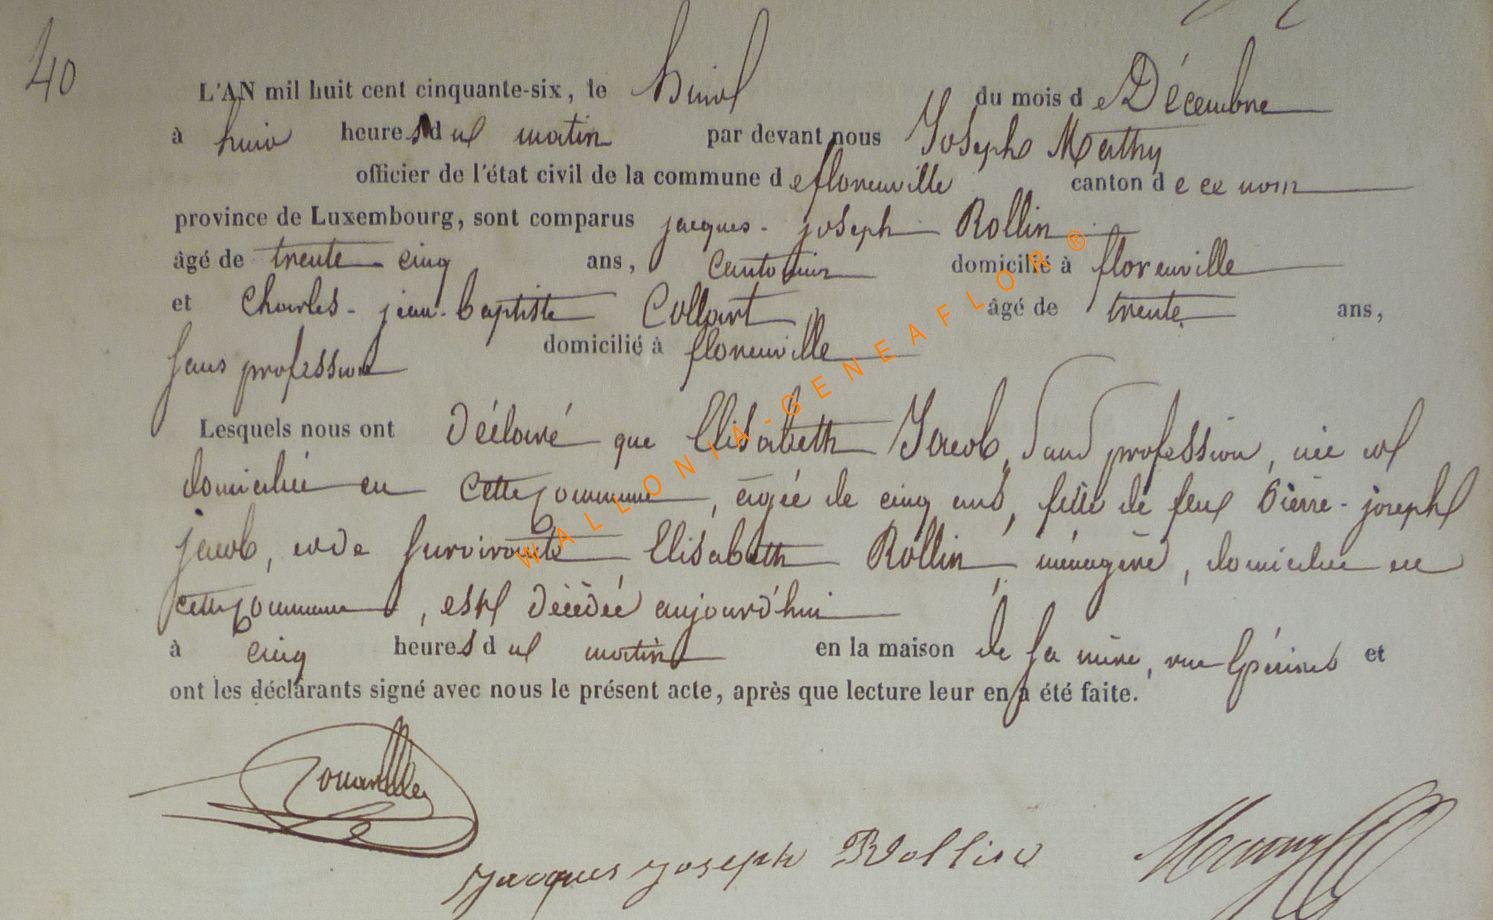 40
L'AN mil huit cent cinquante-six, le huit du mois de Décembre
à huit heures du matin par devant nous Joseph Mathy
officier de l'état civil de la commune de florenville canton de ce nom
province de Luxembourg, sont comparus jacques-joseph Rollin
âgé de trente cinq ans, cantonnier domicilié à florenville
et Charles-jean-baptiste Collart, âgé de trente ans,
sans profession domicilié à florenville
Lesquels nous ont Déclaré que Elisabeth Jacob, sans profession, née et
domiciliée en cette commune, âgée de cinq ans, fille de feu Pierre-joseph
jacob, et de survivante Elisabeth Rollin, ménagère, domiciliée en
cette commune, est décédée aujourd'hui
à cinq heures du matin en la maison de sa mère, rue et
ont les déclarants signé avec nous le présent acte, après que lecture leur en a été faite.
Jacques joseph Rollin
WALLONIA-GENEAFLOR®